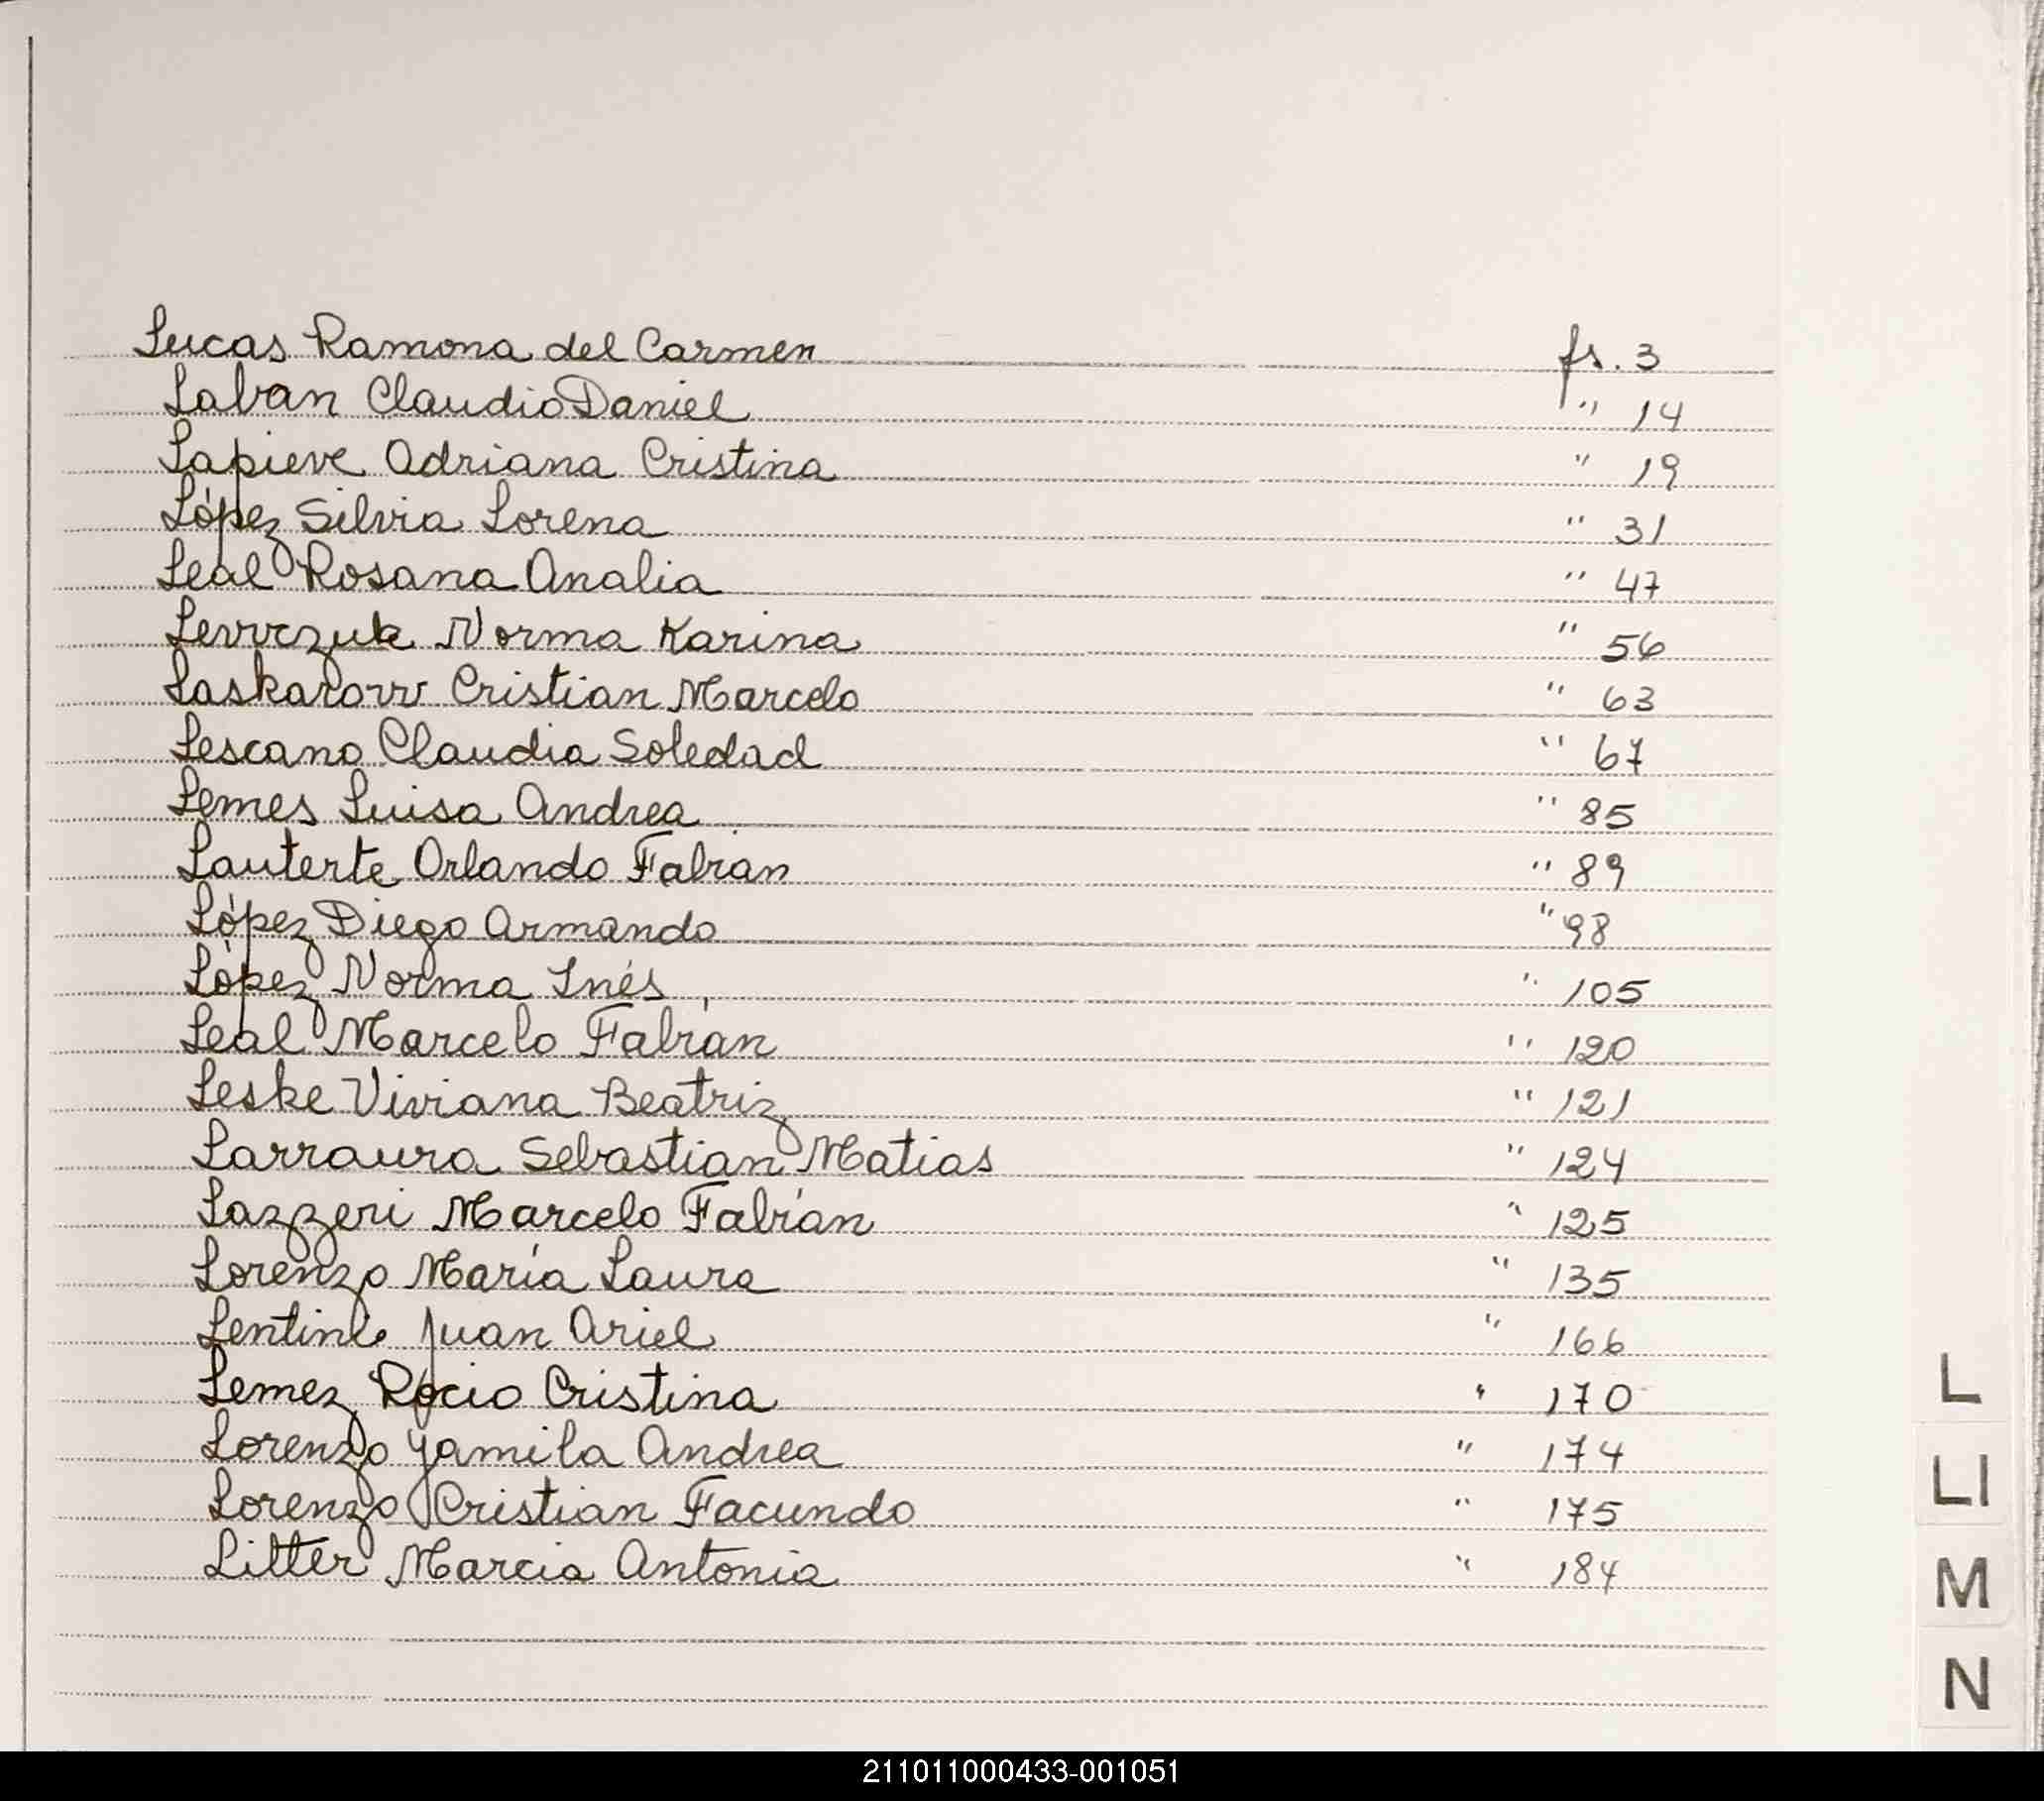 Lucas Ramona del Carmen fs. 3
Laban Claudio Daniel " 14
Lapieve Adriana Cristina " 19
López Silvia Lorena " 31
Leal Rosana Analia " 47
Lewczuk Norma Karina " 56
Laskarow Cristian Marcelo " 63
Lescano Claudia Soledad " 67
Lemes Luisa Andrea " 85
Lauterte Orlando Fabian " 89
López Diego Armando " 98
López Norma Inés " 105
Leal Marcelo Fabián " 120
Leske Viviana Beatriz " 121
Larraura Sebastian Matias " 124
Lazzeri Marcelo Fabián " 125
Lorenzo María Laura " 135
Lentini Juan Ariel " 166
Lemez Rocio Cristina " 170
Lorenzo Yamila Andrea " 174
Lorenzo Cristian Facundo " 175
Litter Marcia Antonia " 184
L
Ll
M
N
211011000433-001051